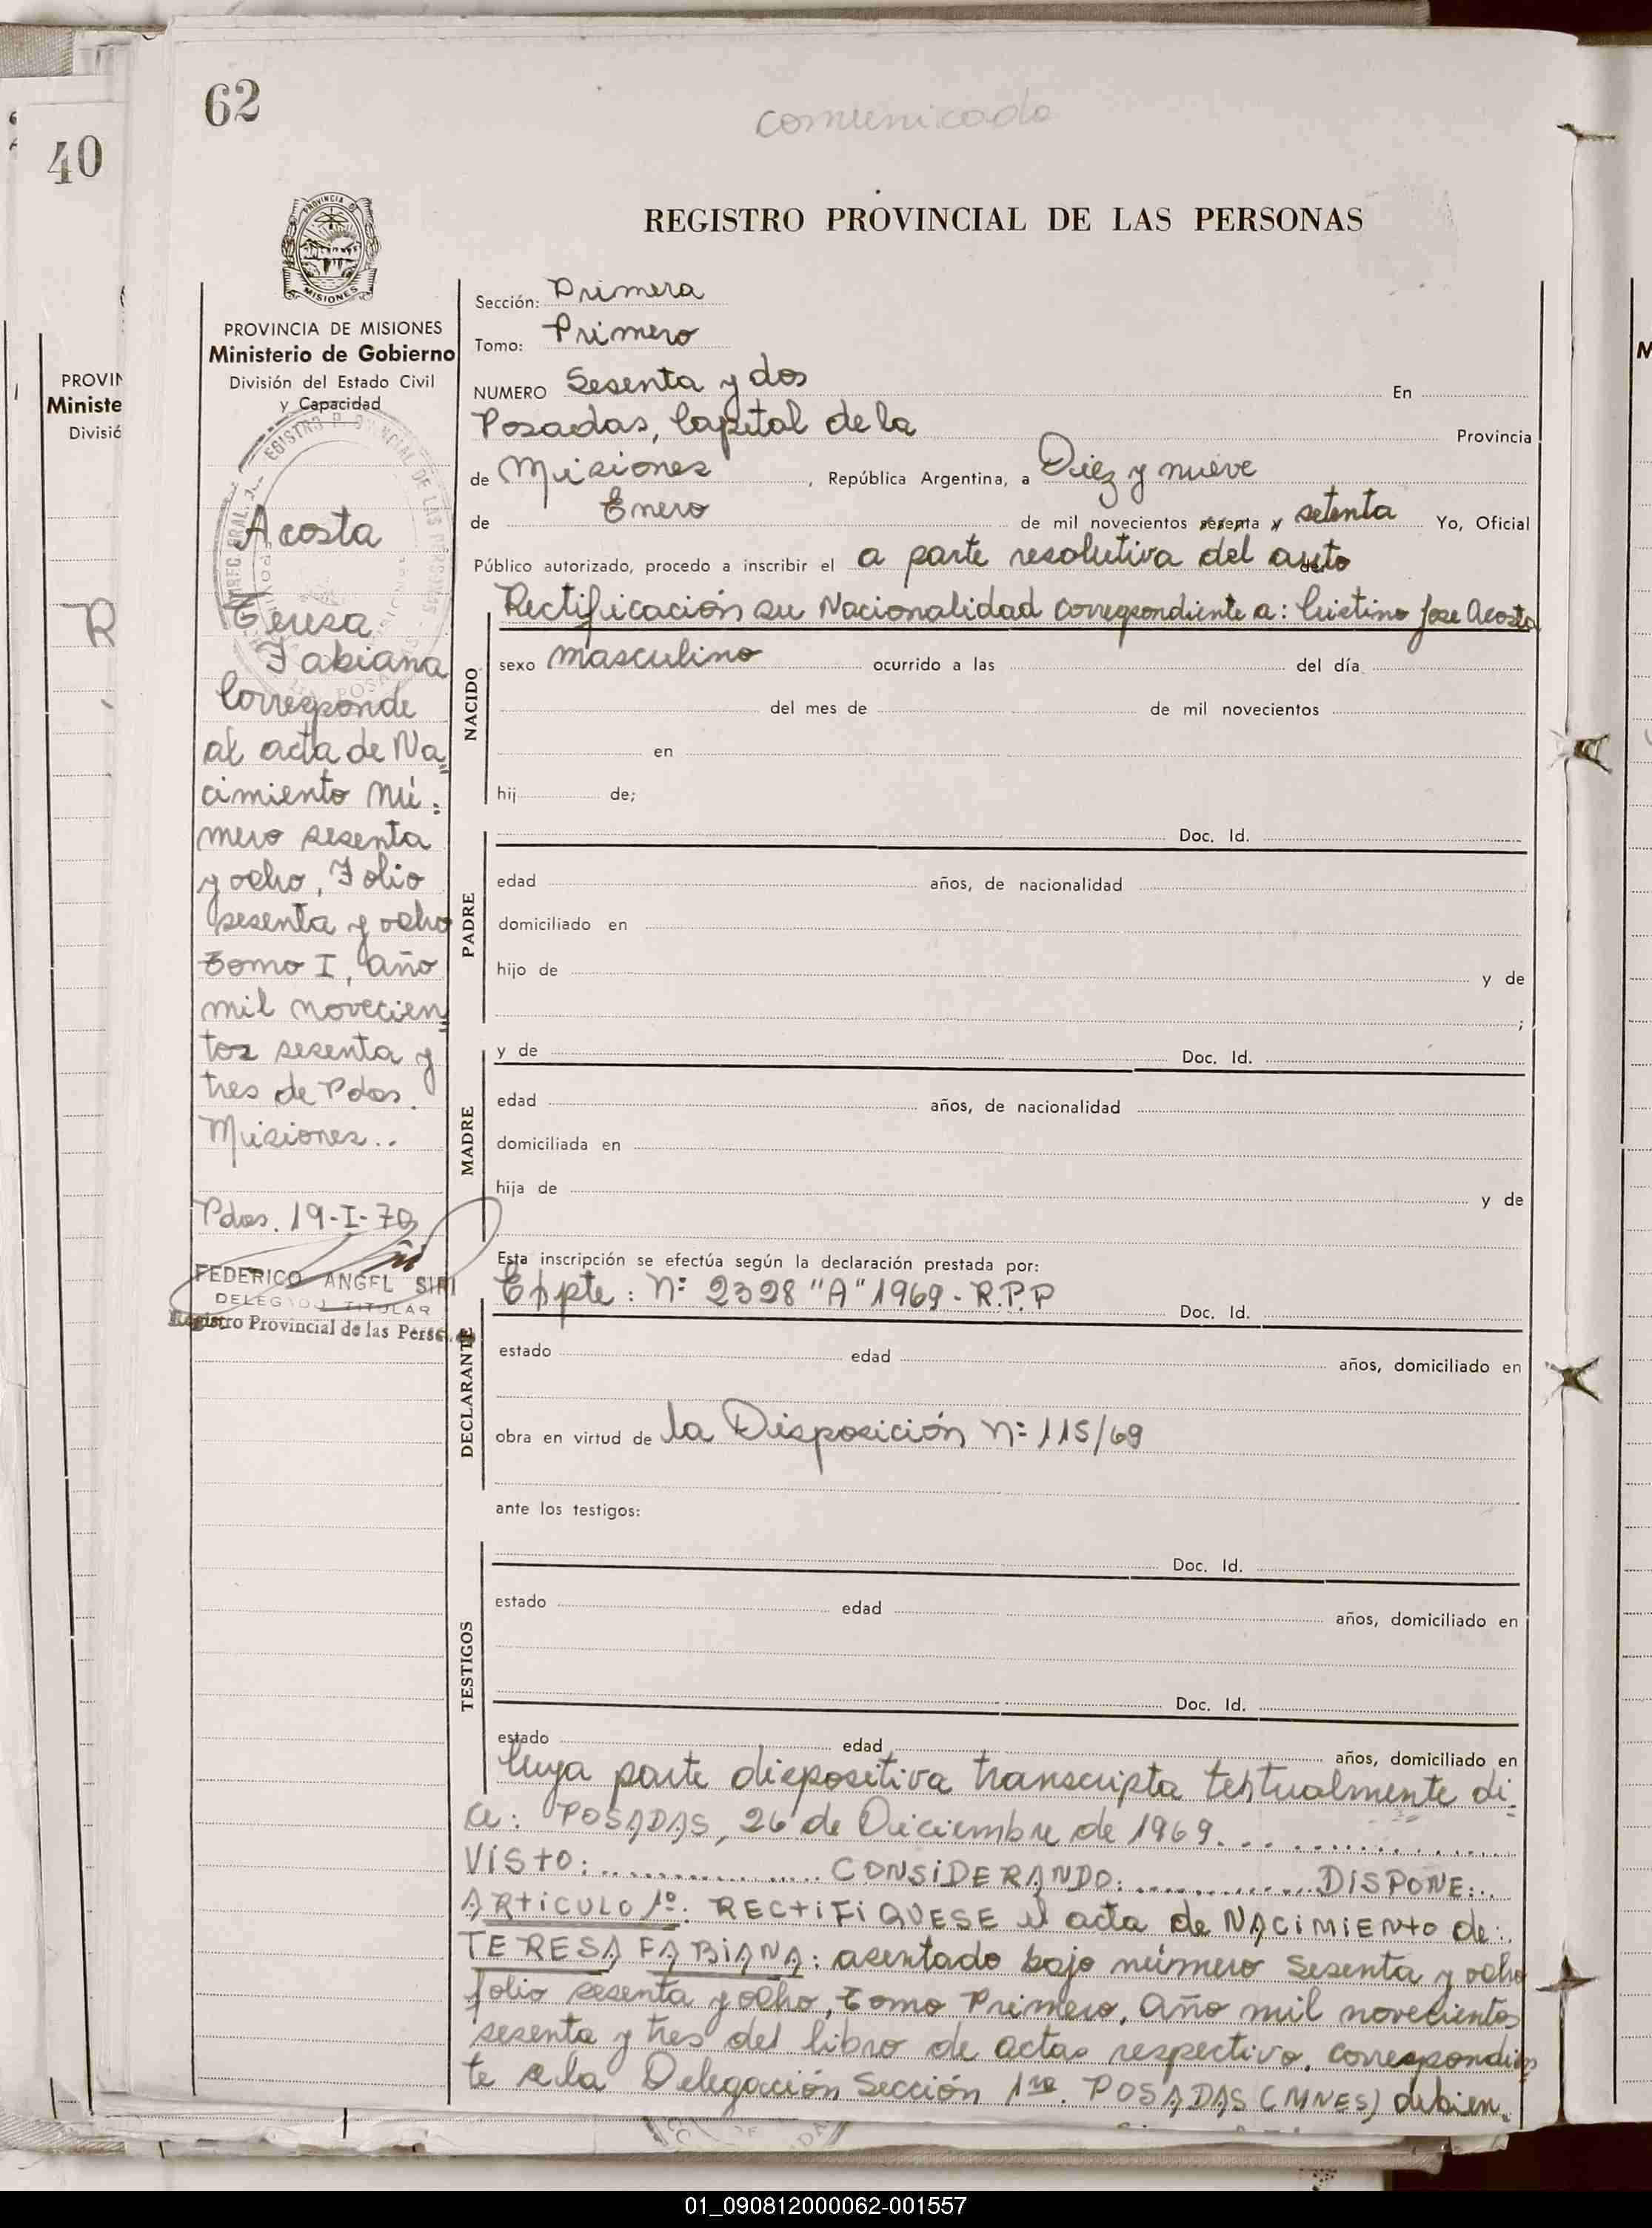 62
comunicado
40
REGISTRO PROVINCIAL DE LAS PERSONAS
PROVINCIA DE MISIONES
PROVINCIA DE MISIONES
Ministerio de Gobierno
División del Estado Civil
y Capacidad
PROVIN
Ministe
Divisió
R
Acosta
Teresa
Fabiana
Corresponde
al acta de Na
cimiento Nú:
mero sesenta
y ocho, Folio
sesenta y ocho
Tomo I, año
mil novecien
tos sesenta y
tres de Pdas.
Misiones..
Pdas. 19-I-70
FEDERICO ANGEL SIRI
DELEGADO TITULAR
Registro Provincial de las Perso
Sección: Primera
Tomo: Primero
NUMERO Sesenta y dos En
Posadas, Capital de la Provincia
de Misiones, República Argentina, a Diez y nueve
de Enero de mil novecientos sesenta y setenta Yo, Oficial
Público autorizado, procedo a inscribir el a parte resolutiva del auto
NACIDO
Rectificación su Nacionalidad correspondiente a: Cristino Jose Acosta
sexo masculino ocurrido a las del día
del mes de de mil novecientos
en
hij de;
Doc. Id.
PADRE
edad años, de nacionalidad
domiciliado en
hijo de y de
;
y de Doc. Id.
MADRE
edad años, de nacionalidad
domiciliada en
hija de y de
Esta inscripción se efectúa según la declaración prestada por:
Expte: Nº 2328 "A" 1969 - R.P.P Doc. Id.
DECLARANTE
estado edad años, domiciliado en
obra en virtud de la Disposición Nº 115/69
ante los testigos:
Doc. Id.
TESTIGOS
estado edad años, domiciliado en
Doc. Id.
estado edad años, domiciliado en
Cuya parte dispositiva transcripta textualmente di:
ce: POSADAS, 26 de Diciembre de 1969.
VISTO: CONSIDERANDO: DISPONE:
ARTICULO 1º: RECTIFIQUESE el acta de NACIMIENTO de:
TERESA FABIANA: asentado bajo número Sesenta y ocho
folio sesenta y ocho, Tomo Primero, Año mil novecientos
sesenta y tres del libro de actas respectivo, correspondien
te a la Delegación Sección 1ra. POSADAS (MNES) debien
01_090812000062-001557